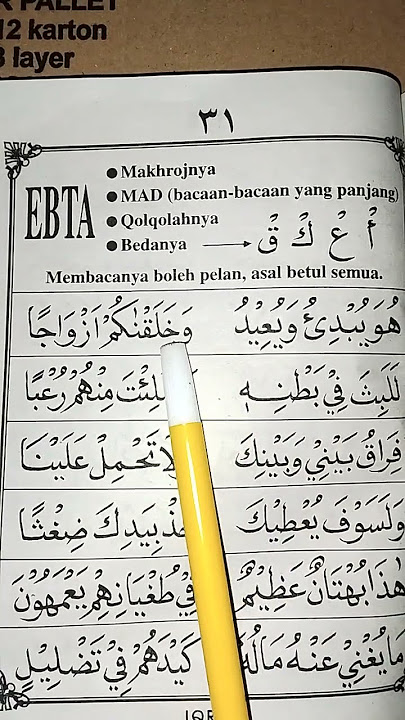 R PALLET
12 karton
3 layer
٣١
EBTA
● Makhrojnya
● MAD (bacaan-bacaan yang panjang)
● Qolqolahnya
● Bedanya → أُ عُ كُ قُ
Membacanya boleh pelan, asal betul semua.
هُوَ يُبْدِئُ وَيُعِيْدُ وَخَلَقْنٰكُمْ اَزْوَاجًا
لَلَبِثَ فِيْ بَطْنِهٖ مِنْهُمْ رُعْبًا
فِرَاقُ بَيْنِيْ وَبَيْنِكَ لَا تَحْمِلْ عَلَيْنَا
وَلَسَوْفَ يُعْطِيْكَ بِيَدِكَ ضِغْثًا
هٰذَا بُهْتَانٌ عَظِيْمٌ فِيْ طُغْيَانِهِمْ يَعْمَهُوْنَ
مَا يُغْنِيْ عَنْهُ مَالُهٗ كَيْدَهُمْ فِيْ تَضْلِيْلٍ